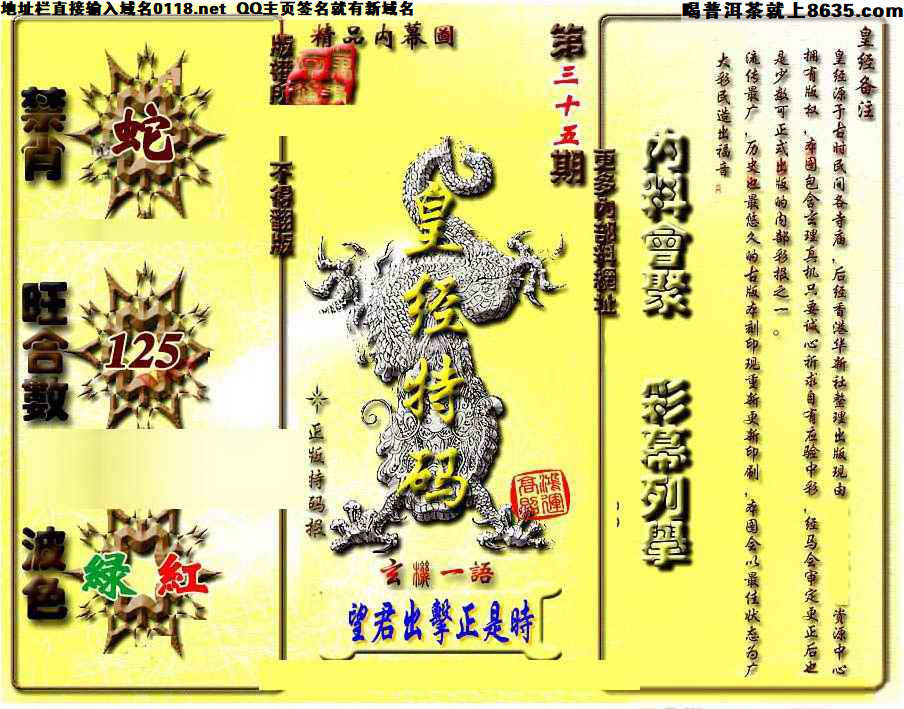 地址栏直接输入域名0118.net QQ主页签名就有新域名
喝普洱茶就上8635.com
禁肖
蛇
旺合數
125
波色
綠 紅
精品内幕圖
版權所
不得翻版
第三十五期
更多内部料網址
皇经特码
正版特码报
鴻運高照
玄機一語
望君出擊正是時
内料會聚
彩幕列舉
皇经备注
皇经源于古时民间各寺庙，后经香港华新社整理出版现由
资源中心
拥有版权，本图包含玄理真机只要诚心祈求自有应验中彩，经马会审定更正后也
是少数可正式出版的内部彩报之一。
流传最广，历史也最悠久的古版本刻印现重新更新印刷，本图会以最佳状态为广
大彩民造出福音